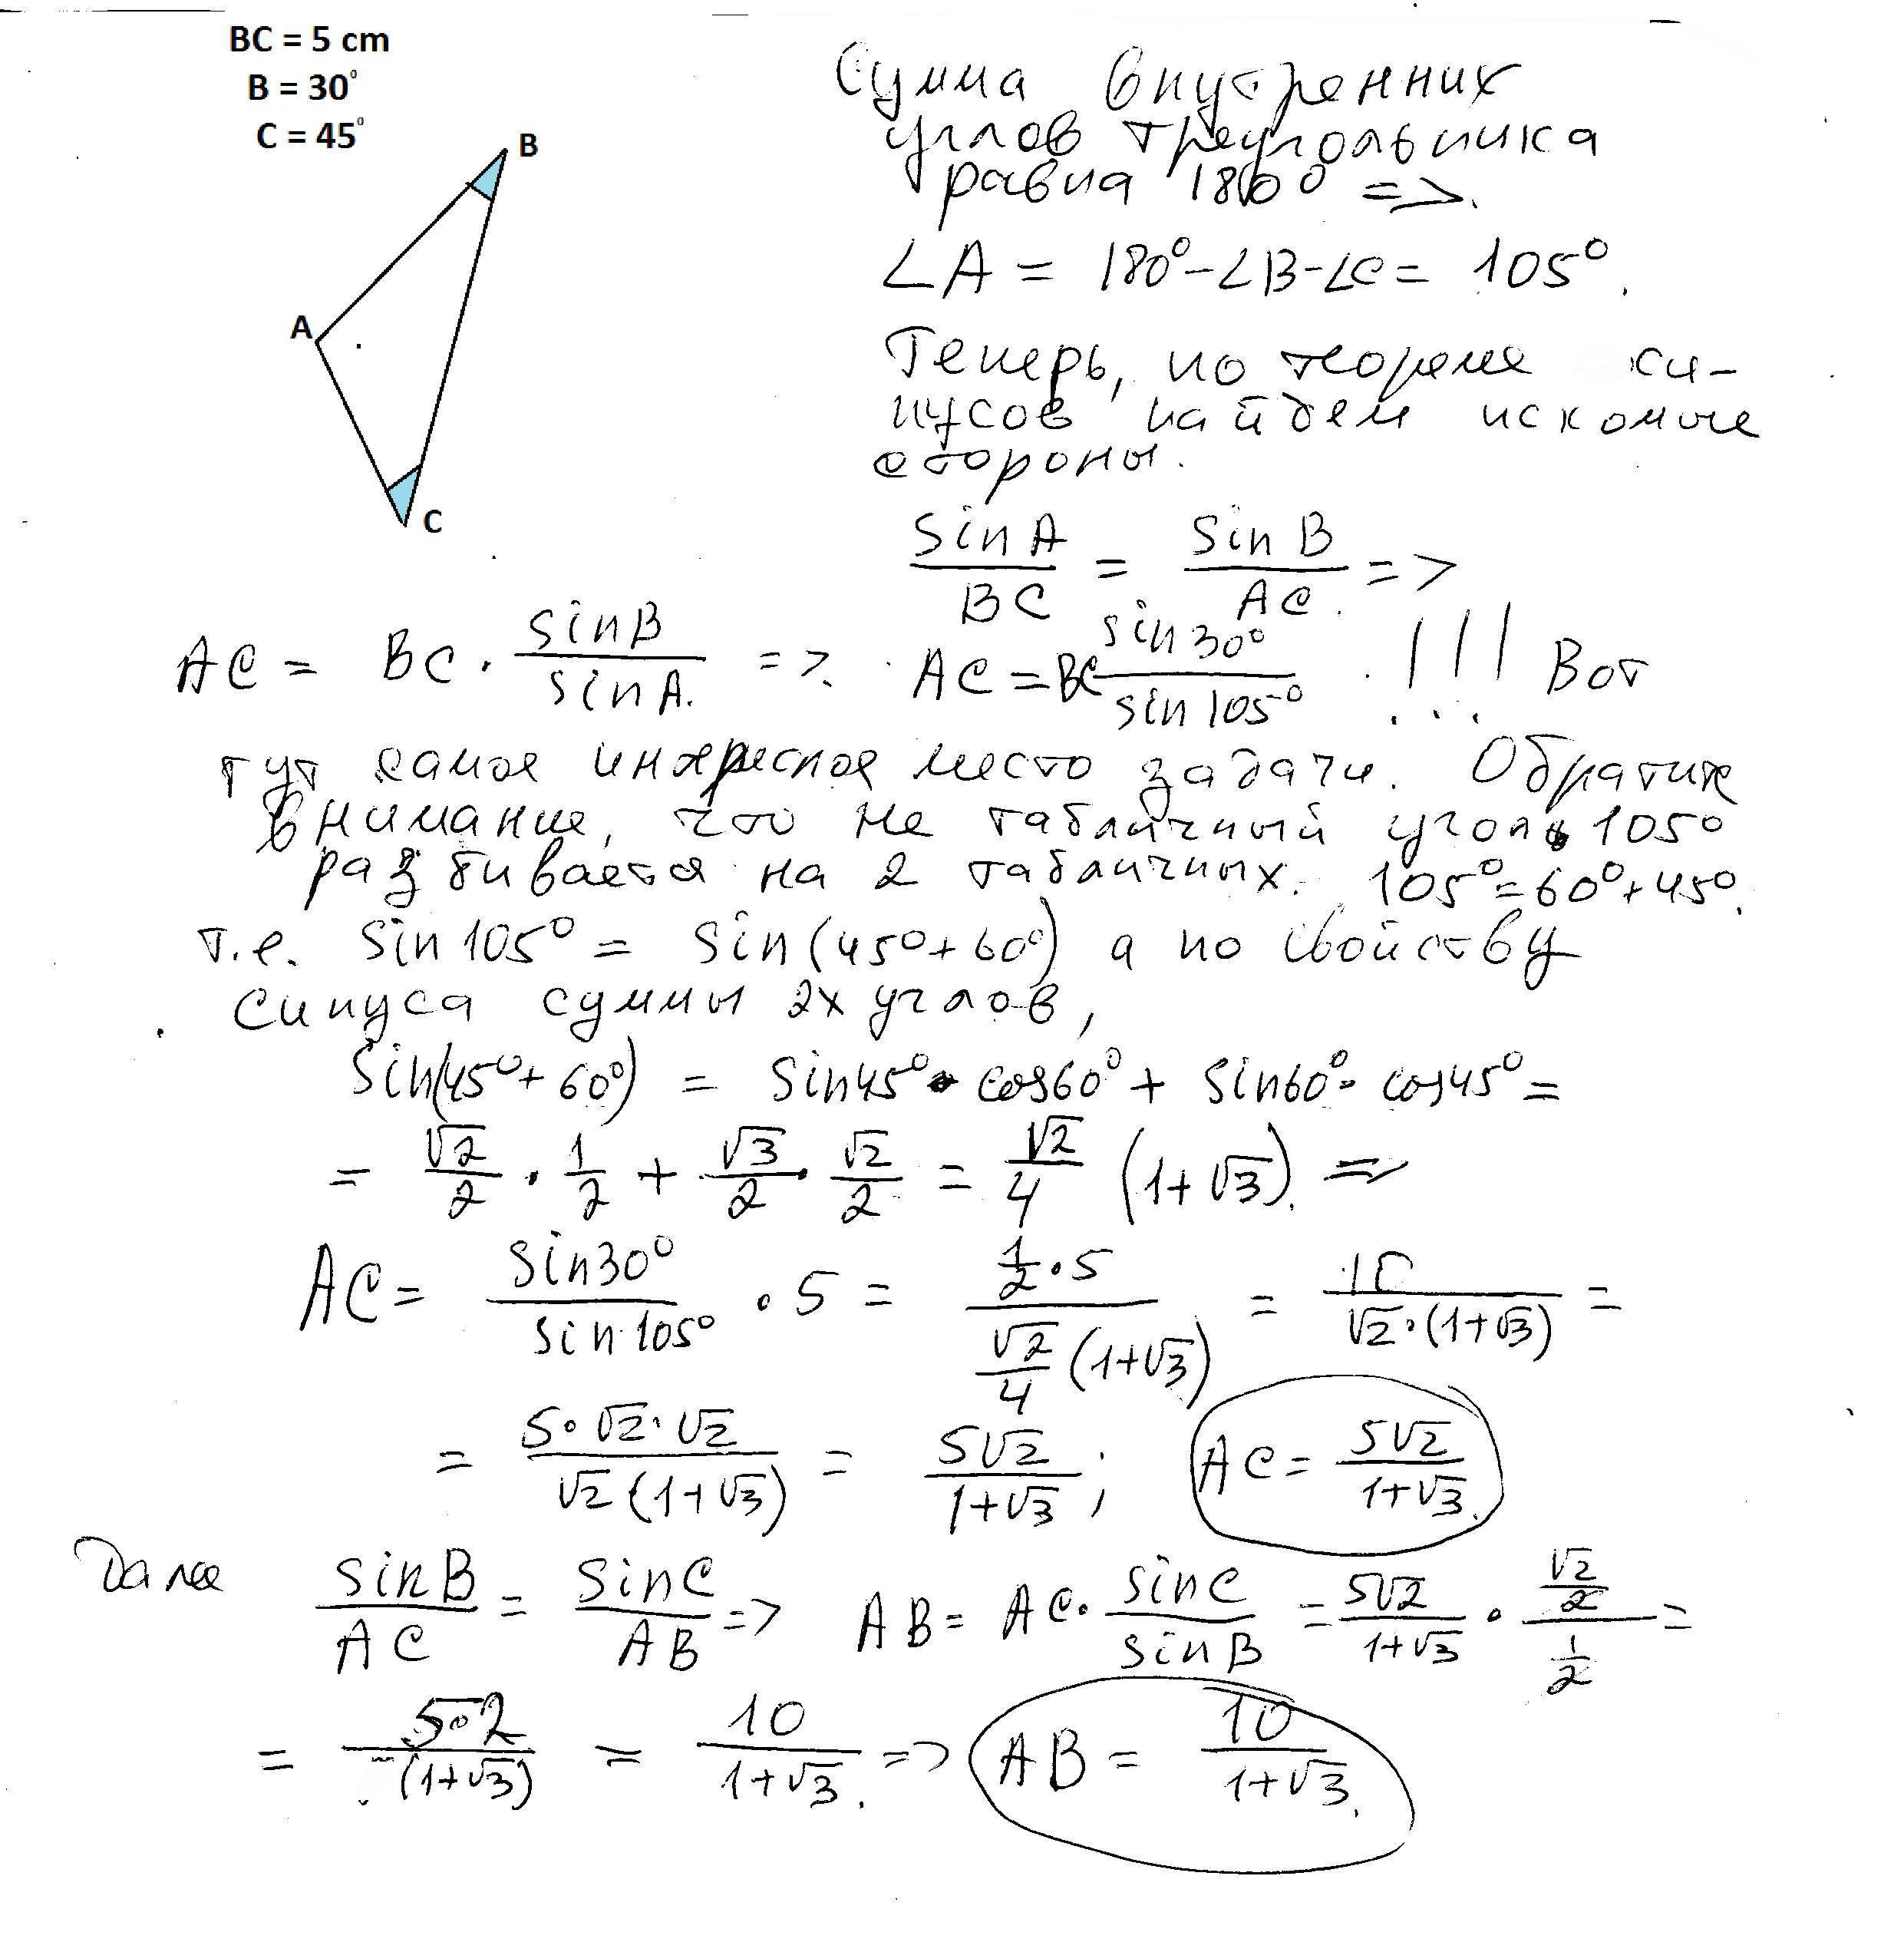 BC = 5 cm
B = 30°
C = 45°
B
A
C
Сумма внутренних
углов треугольника
равна 180° =>
∠A = 180° - ∠B - ∠C = 105°.
Теперь, по теореме си-
нусов найдем искомые
стороны.
sin A / BC = sin B / AC =>
AC = BC · sin B / sin A => AC = BC sin 30° / sin 105° !!! Вот
тут самое интересное место задачи. Обратите
внимание, что не табличный угол 105°
разбивается на 2 табличных. 105° = 60° + 45°.
т.е. sin 105° = sin (45° + 60°) а по свойству
синуса суммы 2х углов,
sin(45° + 60°) = sin 45° · cos 60° + sin 60° · cos 45° =
= √2/2 · 1/2 + √3/2 · √2/2 = √2/4 (1+√3). =>
AC = sin 30° / sin 105° · 5 = (1/2 · 5) / (√2/4 (1+√3)) = 10 / (√2 · (1+√3)) =
= 5·√2·√2 / (√2 (1+√3)) = 5√2 / (1+√3); AC = 5√2 / (1+√3).
Далее sin B / AC = sin C / AB => AB = AC · sin C / sin B = 5√2 / (1+√3) · (√2/2) / (1/2) =
= 5·2 / (1+√3) = 10 / (1+√3). => AB = 10 / (1+√3).